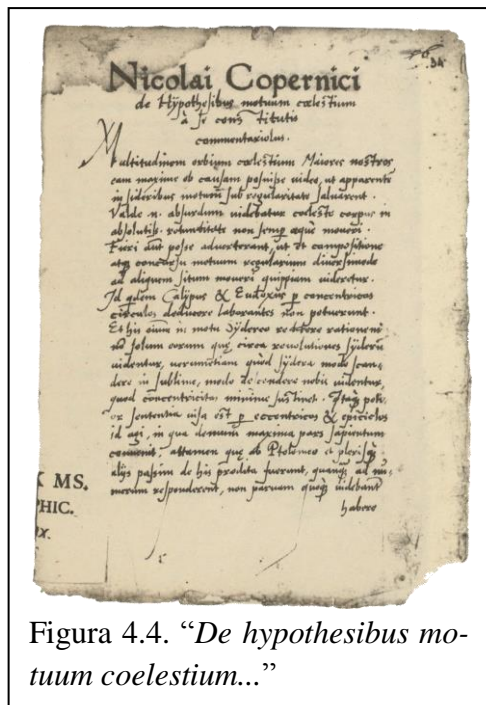 34
Nicolai Copernici
de Hypothesibus motuum cœlestium
à se constitutis
commentariolus.
Multitudinem orbium cœlestium Maiores nostros
eam maxime ob causam posuisse uideo, ut apparente
in sideribus motum sub regularitate saluarent.
Valde n. absurdum uidebatur cœleste corpus in
absolutiss. rotunditate non semp æque moueri.
posse aduerterant, ut
motuum regularium diuersimode
ad aliquem situm moueri quippiam uideretur.
Id Calippus & Eudoxus p concentricos
circulos deducere laborantes non potuerunt.
Et his in motu sydereo reddere rationem
solum eorum quę circa reuolutiones syderum
uidentur, uerumetiam quod sydera modo scan-
dere in sublime, modo descendere nobis uidentur,
quod concentricitas minime sustinet. Itaq poti-
or sententia uisa est p eccentricos & epiciclos
id agi, in qua demum maxima pars sapientum
conuenit, attamen quę ab Ptolomeo et plerisq
alijs passim de his prodita fuerunt, quanq ad nu-
merum responderent, non paruam quoq uidebant
habere
MS.
HIC.
X.
Figura 4.4. “De hypothesibus mo-
tuum coelestium...”